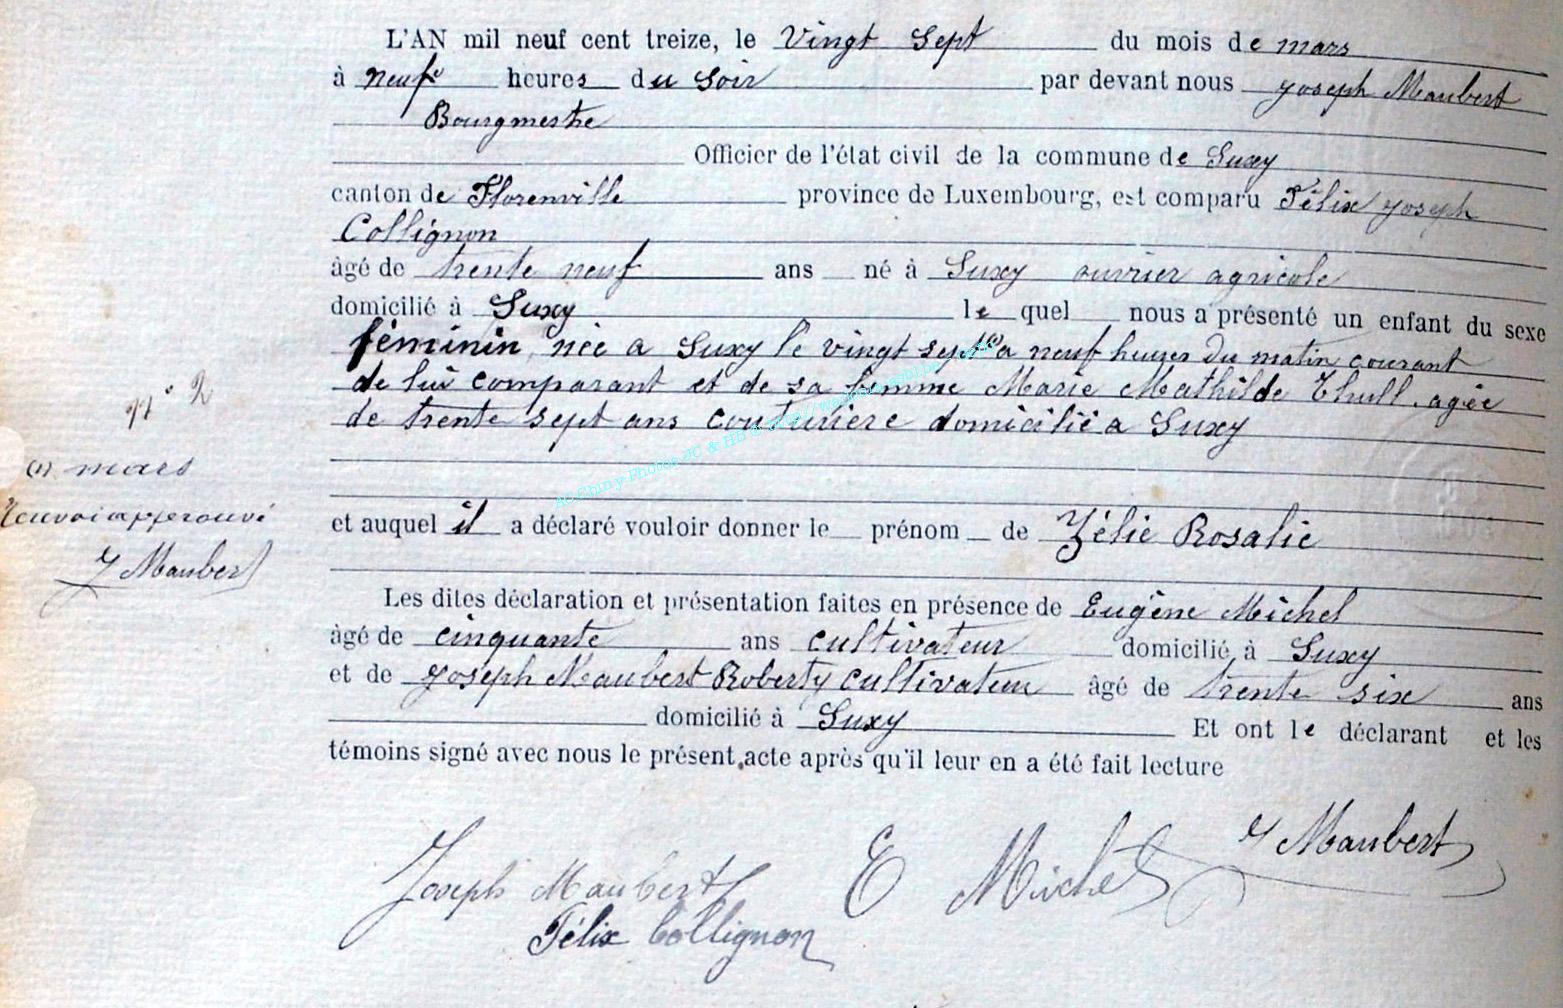 L'AN mil neuf cent treize, le Vingt Sept du mois de mars
à neuf heures du Soir par devant nous Joseph Maubert
Bourgmestre
Officier de l'état civil de la commune de Suxy
canton de Florenville province de Luxembourg, est comparu Félix Joseph
Collignon
âgé de trente neuf ans né à Suxy ouvrier agricole
domicilié à Suxy le quel nous a présenté un enfant du sexe
féminin, née a Suxy le vingt sept (1) a neuf heures du matin courant
de lui comparant et de sa femme Marie Mathilde Thull agée
de trente sept ans couturière domicilié a Suxy
n° 2
(1) mars
Renvoi approuvé
J Maubert
et auquel il a déclaré vouloir donner le prénom de Zélie Rosalie
Les dites déclaration et présentation faites en présence de Eugène Michel
âgé de cinquante ans cultivateur domicilié à Suxy
et de Joseph Maubert Roberty cultivateur âgé de trente six ans
domicilié à Suxy Et ont le déclarant et les
témoins signé avec nous le présent acte après qu'il leur en a été fait lecture
J Maubert
Joseph Maubert E Michel
Félix Collignon
AC Chiny Photos JC & HB